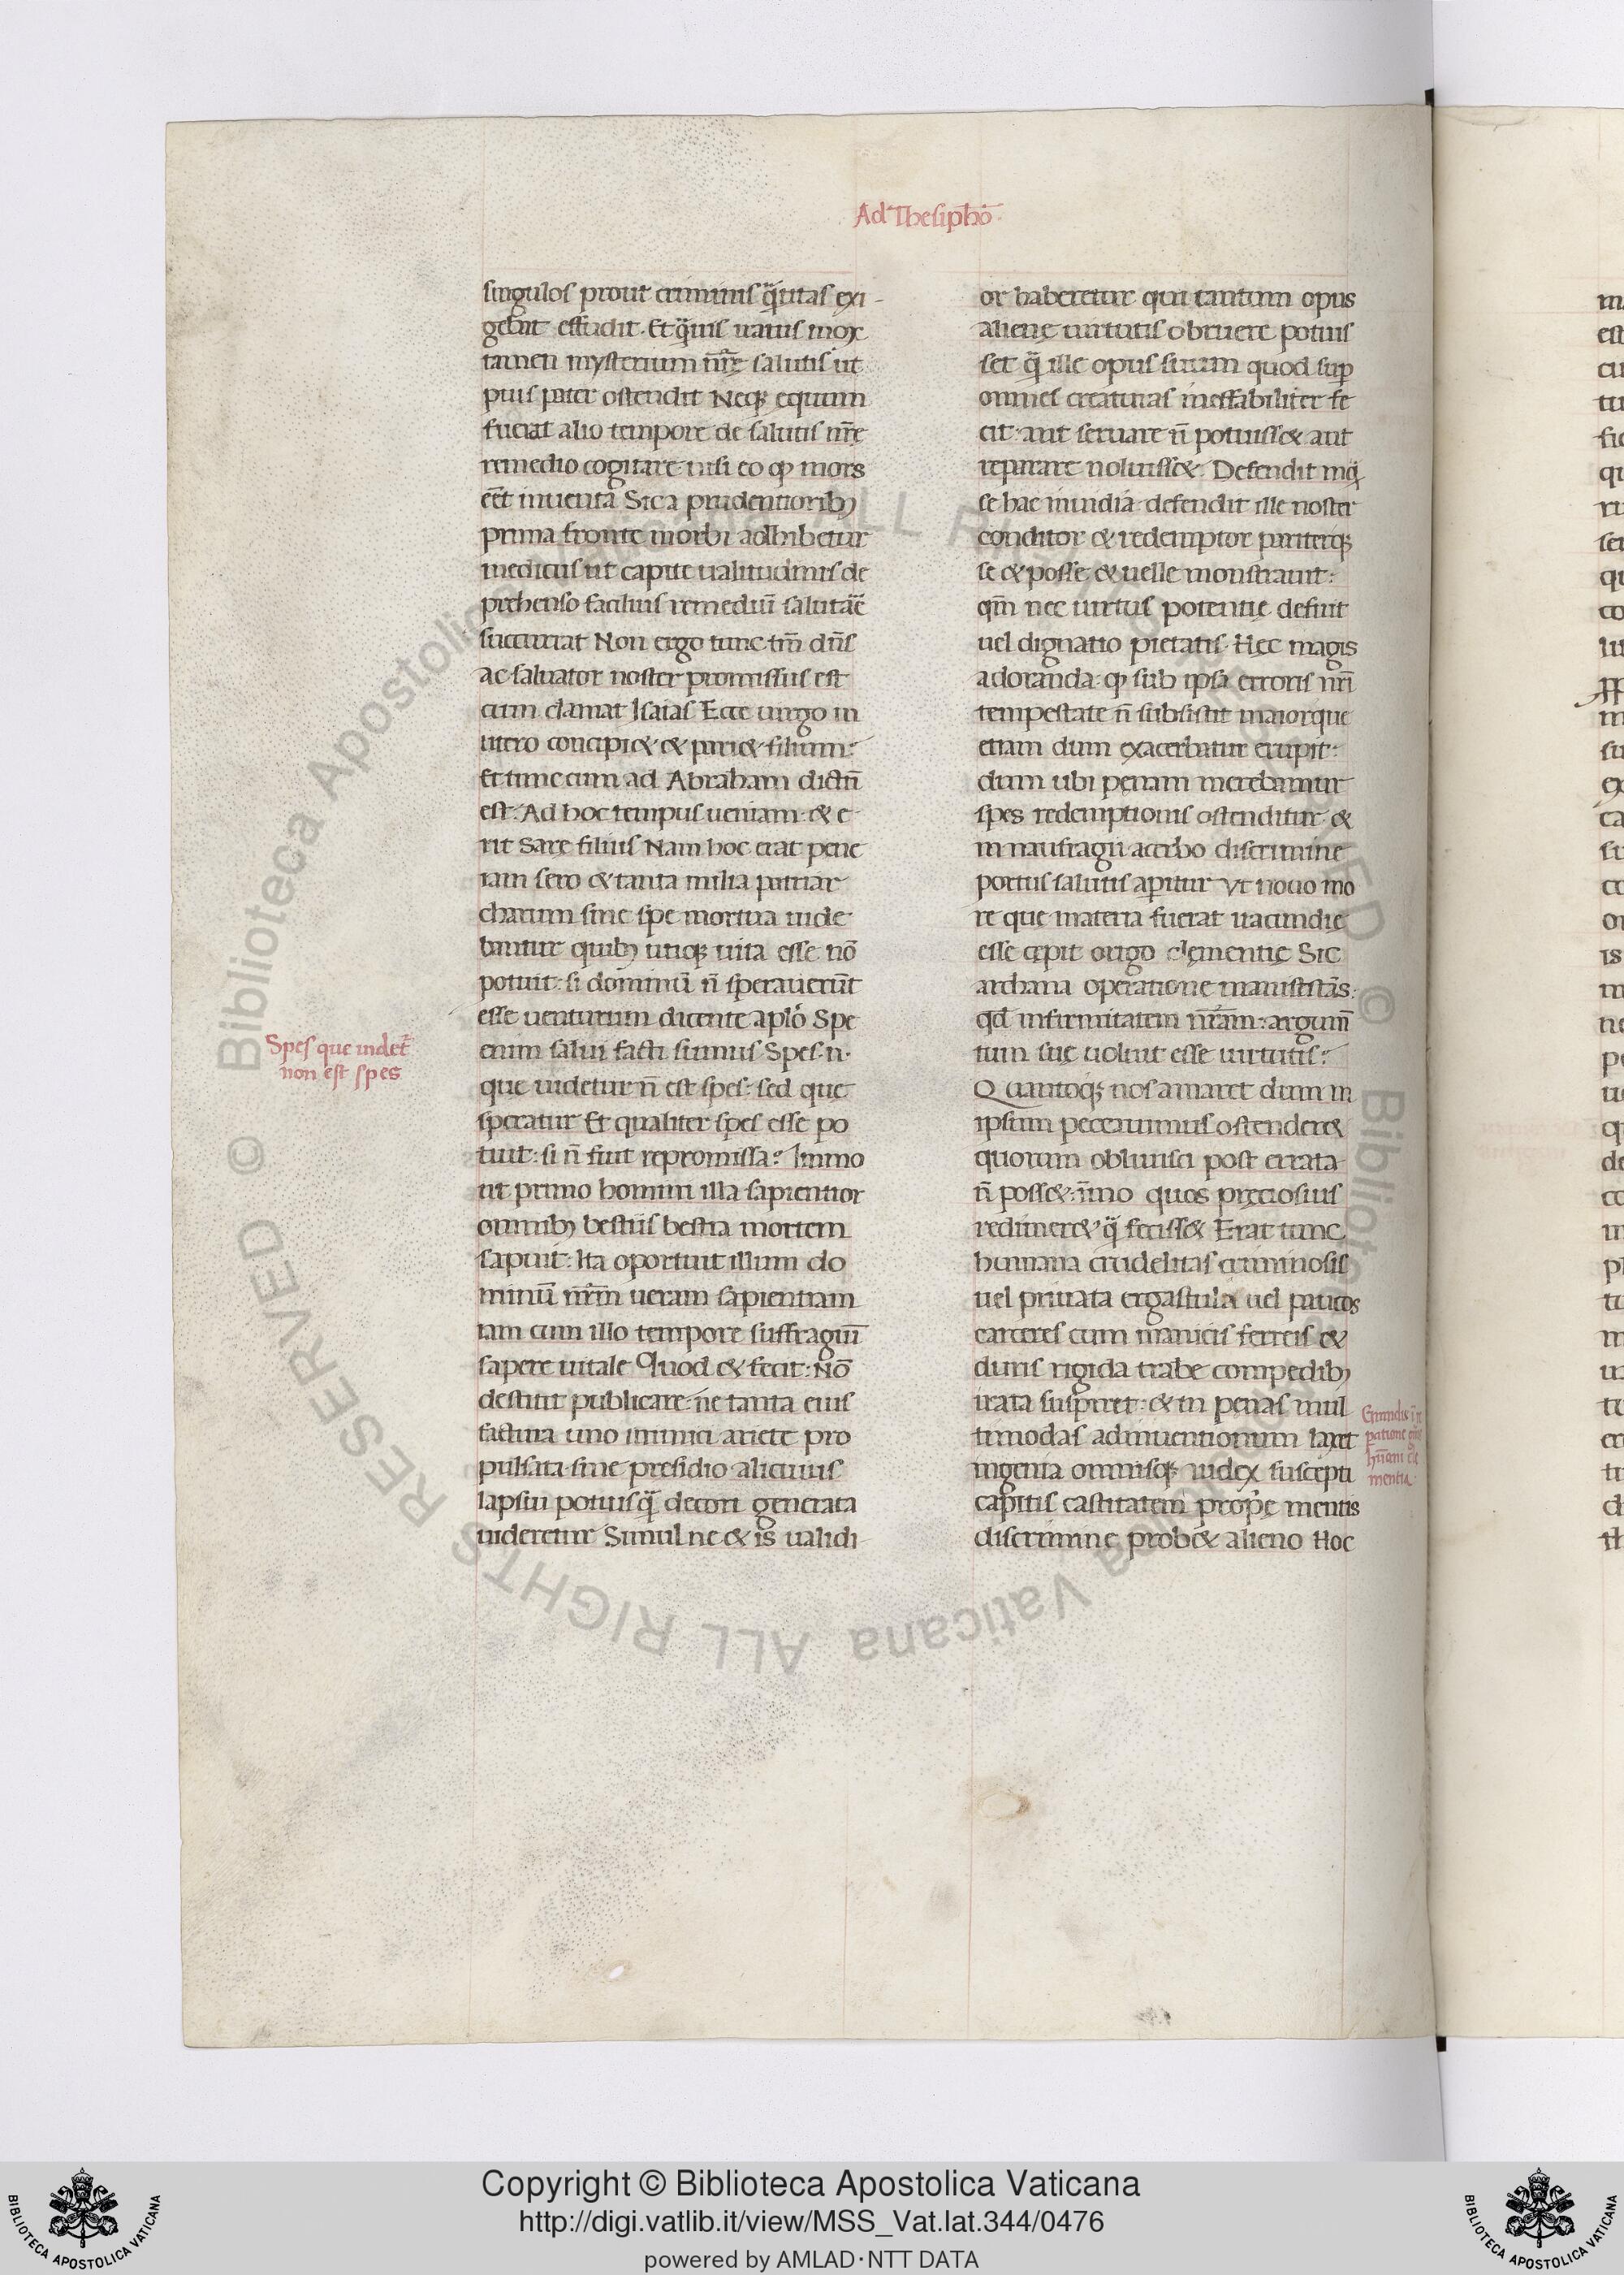 Ad Thesiphō
singulos prout criminis q̄litas exi-
gebat effudit. Et q̄uis uatis mox
tamen mysterium nr̄ę salutis ut
pius pater ostendit Neq; equum
fuerat alio tempore de salutis nr̄ę
remedio cogitare nisi eo q̇ mors
eēt inuenta Sic a prudentiorib;
prima fronte morbi adhibetur
medicus ut capite ualitudinis de
prehenso facilius remediū salutāē
succurrat Non ergo tunc tm̄ dn̄s
ac saluator noster promissus est
cum clamat Isaias Ecce uirgo in
utero concipi& & pari& filium:
Et tunc cum ad Abraham dictū
est: Ad hoc tempus ueniam: & e-
rit Sarę filius Nam hoc erat pene
iam sero & tanta milia patriar
charum sine spe mortua uide
bantur quib; utiq; uita esse nō
potuit: si dominū n̄ sperauerūt
esse uenturum dicente aplō Spe
enim salui facti sumus Spes .n.
que uidetur n̄ est spes: sed que
speratur Et qualiter spes esse po
tuit: si n̄ fuit repromissa? Immo
ut primo homini illa sapientior
omnib; bestiis bestia mortem
sapuit: Ita oportuit illum do
minū nr̄m ueram sapientiam
iam cum illo tempore suffragiū
sapere uitale Quod & fecit: Nō
destitit publicare: ne tanta eius
factura uno inimici ariete pro
pulsata sine presidio alicuius
lapsui potiusq̄ decori generata
uideretur Simul ne & is ualidi-
Spes que uidet̄
non est spes
or haberetur qui tantum opus
alienę uirtutis obruere potuis
set q̄ ille opus suum quod sup̄
omnes creaturas ineffabiliter fe
cit: aut seruare n̄ potuiss& aut
reparare noluiss& Defendit inq̄
se hac inuidia: defendit ille noster
conditor & redemptor pariterq;
se & posse & uelle monstrauit:
qm̄ nec uirtus potentię defuit
uel dignatio pietatis. Hęc magis
adoranda: q̇ sub ipsa erroris nr̄i
tempestate n̄ subsistit maiorque
etiam dum exacerbatur erupit:
dum ubi penam merebamur
spes redemptionis ostenditur: &
in naufragii acerbo discrimine
portus salutis aperitur Vt nouo mo
re que materia fuerat iracundię
esse cępit origo clęmentię Sic
archana operatione manifestās:
qd̄ infirmitatem nr̄am: argum̄
tum suę uoluit esse uirtutis:
Quantoq; nos amaret dum in
ipsum peccauimus ostender&
quorum obliuisci post errata
n̄ poss&: īmo quos pręciosius
redimer& q̄ feciss& Erat tunc
humana crudelitas criminosis
uel priuata ergastula uel paucos
carceres cum manicis ferreis &
duris rigida trabe compedib;
irata suspiret: & in penas mul
timodas adinuentionum laxet
ingenia omnisq; iudex suscepti
capitis castitatem proprię mentis
discrimine prob& alieno Hoc
mentia
Copyright © Biblioteca Apostolica Vaticana
http://digi.vatlib.it/view/MSS_Vat.lat.344/0476
powered by AMLAD·NTT DATA
BIBLIOTECA APOSTOLICA VATICANA
BIBLIOTECA APOSTOLICA VATICANA